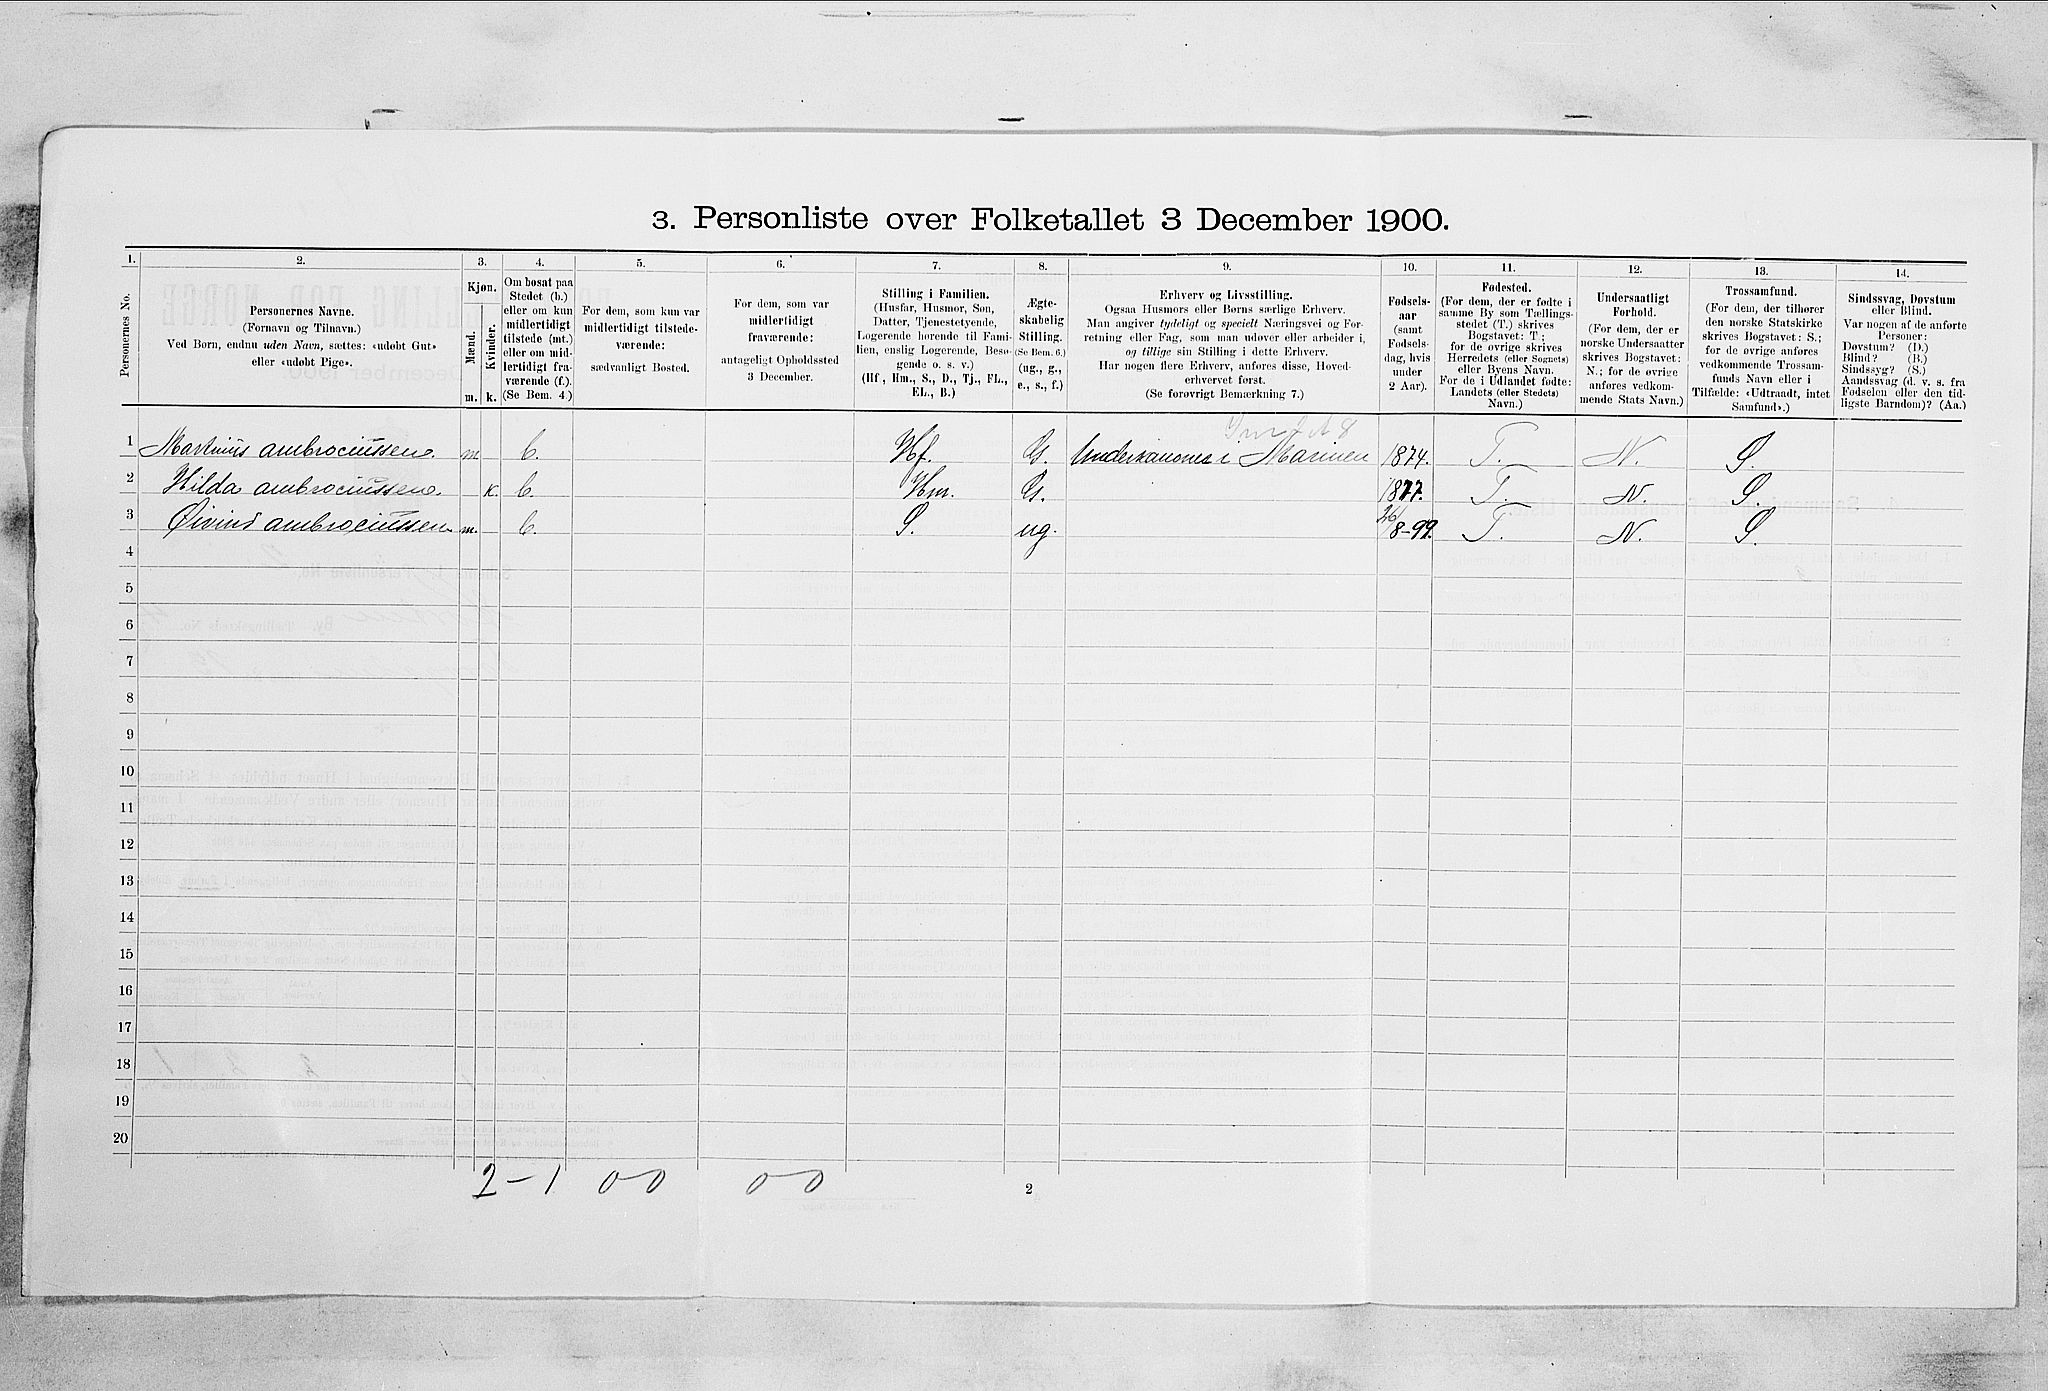 3. Personliste over Folketallet 3 December 1900.
1. 2. 3. 4. 5. 6. 7. 8. 9. 10. 11. 12. 13. 14.
Personernes No.
Personernes Navne.
(Fornavn og Tilnavn.)
Ved Børn, endnu uden Navn, sættes: «udøbt Gut»
eller «udøbt Pige».
Kjøn.
Mænd.
Kvinder.
m. k.
Om bosat paa
Stedet (b.)
eller om kun
midlertidigt
tilstede (mt.)
eller om mid-
lertidigt fra-
værende (f.).
(Se Bem. 4.)
For dem, som kun var
midlertidigt tilstede-
værende:
sædvanligt Bosted.
For dem, som var
midlertidigt
fraværende:
antageligt Opholdssted
3 December.
Stilling i Familien.
(Husfar, Husmor, Søn,
Datter, Tjenestetyende,
Logerende hørende til Fami-
lien, enslig Logerende, Besø-
gende o. s. v.)
(Hf., Hm., S., D., Tj., FL.,
EL., B.)
Ægte-
skabelig
Stilling.
(Se Bem. 6.)
(ug., g.,
e., s., f.)
Erhverv og Livsstilling.
Ogsaa Husmors eller Børns særlige Erhverv.
Man angiver tydeligt og specielt Næringsvei og For-
retning eller Fag, som man udøver eller arbeider i,
og tillige sin Stilling i dette Erhverv.
Har nogen flere Erhverv, anføres disse, Hoved-
erhvervet først.
(Se forøvrigt Bemærkning 7.)
Fødsels-
aar
(samt
Fødsels-
dag, hvis
under
2 Aar).
Fødested.
(For dem, der er fødte i
samme By som Tællings-
stedet (T.) skrives
Bogstavet: T;
for de øvrige skrives
Herredets (eller Sognets)
eller Byens Navn.
For de i Udlandet fødte:
Landets (eller Stedets)
Navn.)
Undersaatligt
Forhold.
(For dem, der er
norske Undersaatter
skrives Bogstavet:
N.; for de øvrige
anføres vedkom-
mende Stats Navn.)
Trossamfund.
(For dem, der tilhører
den norske Statskirke
skrives Bogstavet: S.;
for de øvrige anføres
vedkommende Trossam-
funds Navn eller i
Tilfælde: «Udtraadt, intet
Samfund».)
Sindssvag, Døvstum
eller Blind.
Var nogen af de anførte
Personer:
Døvstum? (D.)
Blind? (B.)
Sindssyg? (S.)
Aandssvag (d. v. s. fra
Fødselen eller den tid-
ligste Barndom)? (Aa.)
1 Martinius ambrociussen. m b. Hf. G. Underkanoner i Marinen 1874. T. N. S.
2 Hilda ambrociussen. k. b. Hm. G. 1877. T. N. S.
3 Øivind ambrociussen m. b. S. ug. 26/8-99. T. N. S.
4
5
6
7
8
9
10
11
12
13
14
15
16
17
18
19
20
2-1 0-0 0-0
2